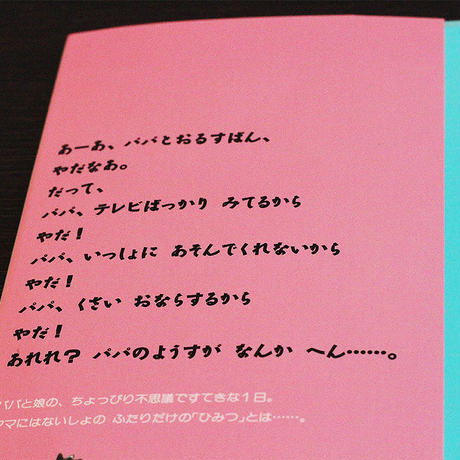 あーあ、パパとおるすばん、
やだなあ。
だって、
パパ、テレビばっかり みてるから
やだ!
パパ、いっしょに あそんでくれないから
やだ!
パパ、くさい おならするから
やだ!
あれれ? パパのようすが なんか へん……。
パパと娘の、ちょっぴり不思議ですてきな1日。
ママにはないしょの ふたりだけの「ひみつ」とは……。